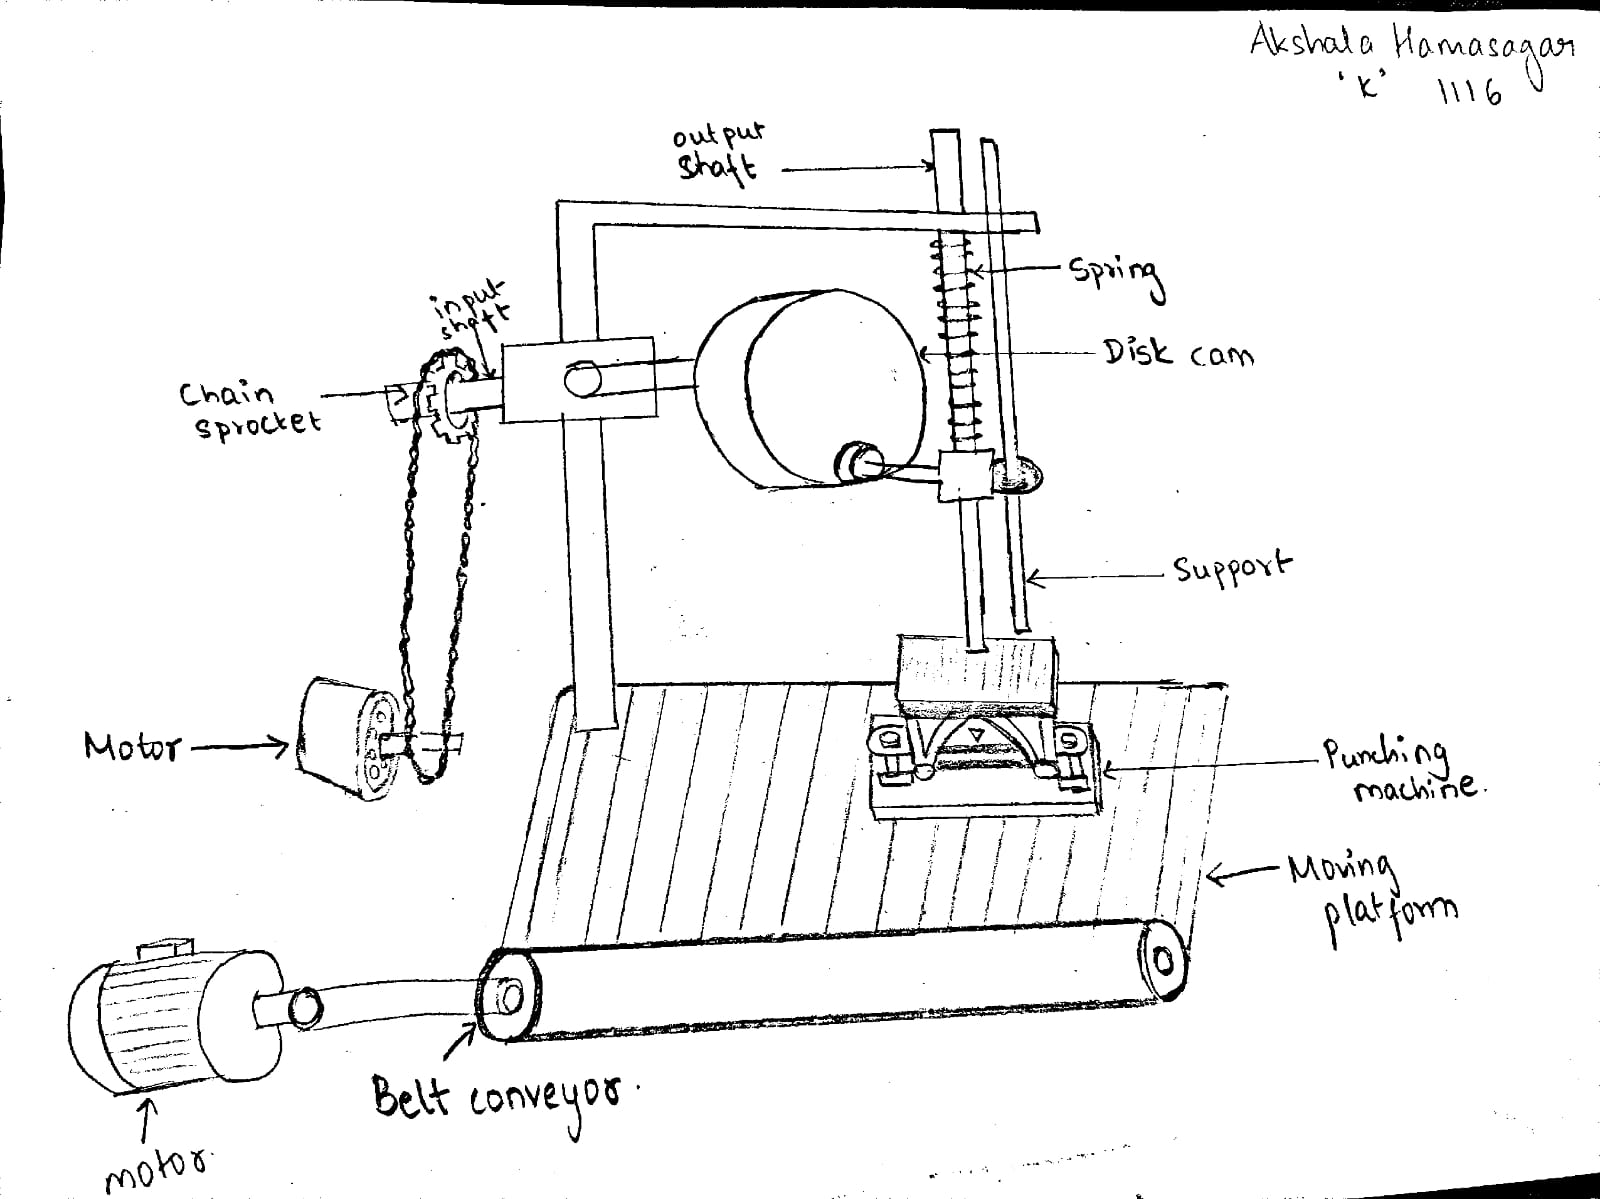 Akshala Hamasagar
'K' 1116
output
shaft
Spring
input
shaft
Disk cam
Chain
sprocket
Support
Motor
Punching
machine.
Moving
platform
Belt conveyor.
motor.